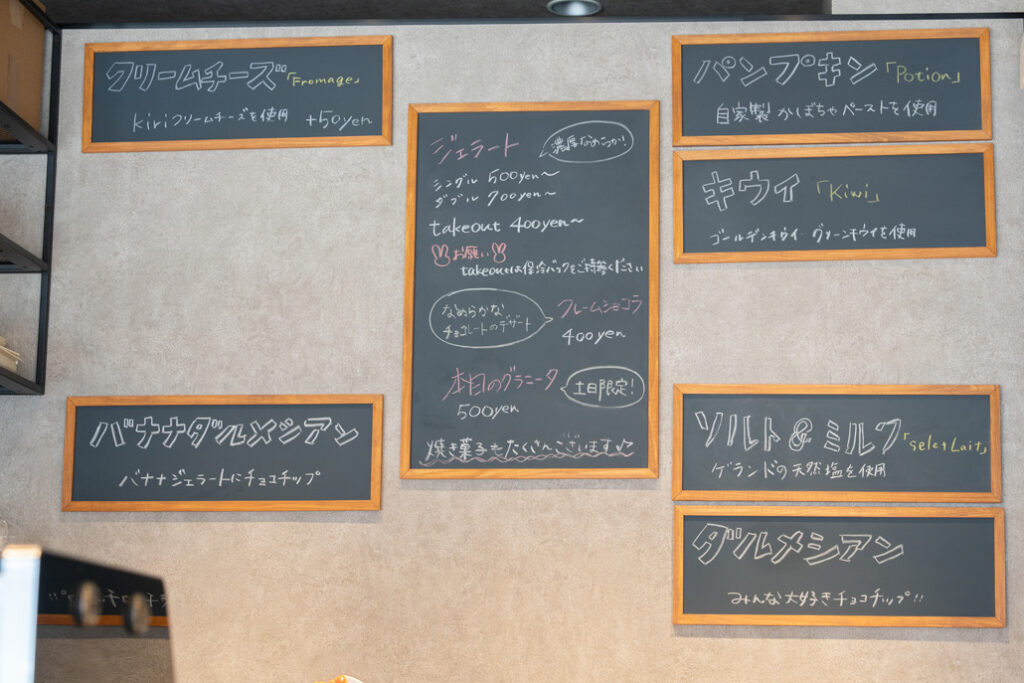 クリームチーズ「Fromage」
kiriクリームチーズを使用 +50yen
バナナダルメシアン
バナナジェラートにチョコチップ
ジェラート
濃厚なめらか!
シングル 500yen〜
ダブル 700yen〜
takeout 400yen〜
お願い
takeoutは保冷バックをご持参ください
なめらかな
チョコレートのデザート
クレームショコラ
400yen
本日のグラニータ
土日限定!
500yen
焼き菓子もたくさんございます♪
パンプキン「Potion」
自家製かぼちゃペーストを使用
キウイ「Kiwi」
ゴールデンキウイ・グリーンキウイを使用
ソルト&ミルク「Sel et Lait」
ゲランドの天然塩を使用
ダルメシアン
みんな大好きチョコチップ!!